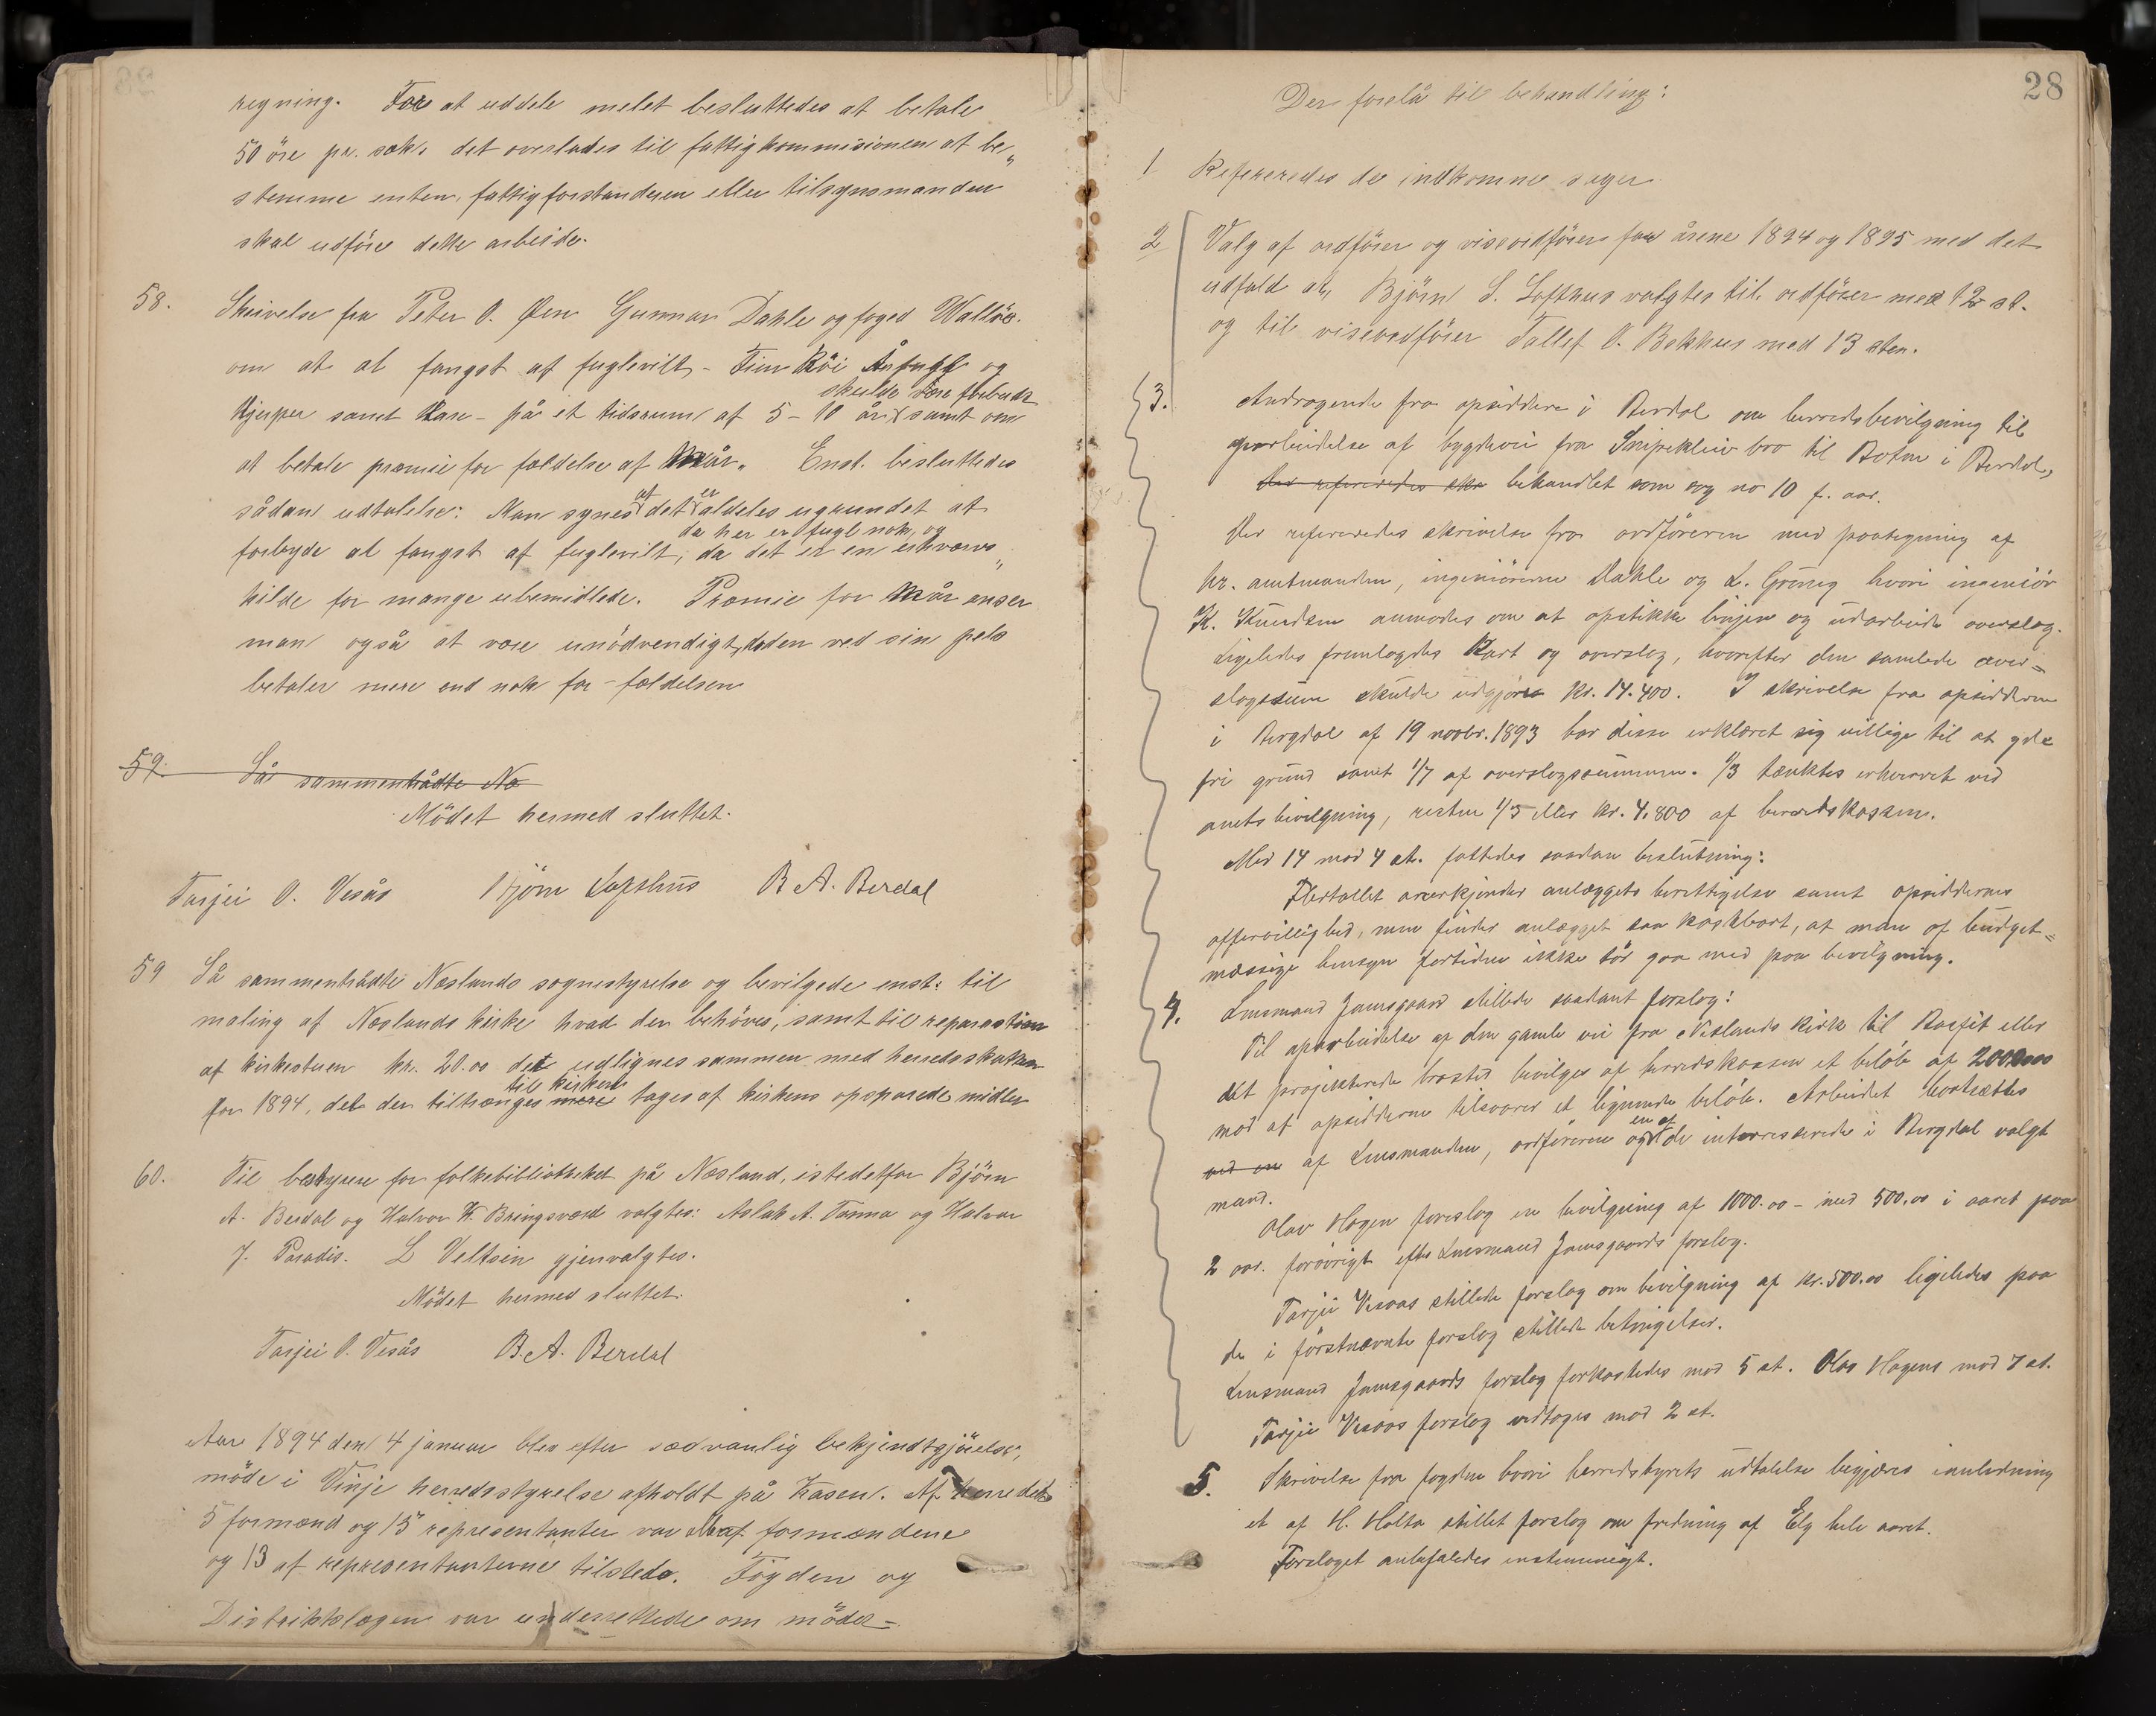 regning. For at uddele melet besluttedes at betale
50 öre pr. sæk. det overlades til fattigkommisionen at be„
stemme enten fattigforstanderen eller tilsynsmanden
skal udföre dette arbeide.
58. Skrivelse fra Peter O. Øen Gunnar Dahle og foged Walløe.
om at al fangst af fuglevilt - Tiur Röi Århugl og
Hjerper samt Hare - på et tidsrum af 5 - 10 år skulde være forbudt samt om
at betale præmie for fældelse af Mår. Enst. besluttedes
sådan udtalelse: Man synes at det er aldeles ugrundet at
forbyde al fangst af fuglevilt, da her er fugl nok, og da det er en erhvervs„
kilde for mange ubemidlede. Præmie for Mår anser
man også at være unödvendigt, da den ved sin pels
betaler mere end nok for fældelsen
59. Så sammentrådte Næ
Mödet hermed sluttet.
Tarjei O. Vesås Björn Lofthus B A. Berdal
59 Så sammentrådte Næslands sognestyrelse og bevilgede enst: til
maling af Næslands kirke hvad der behöves, samt til reparation
af kirkestuen kr. 20.00 det udlignes sammen med herredsskatten
for 1894, det der tiltrænges mere til kirken tages af kirkens opsparede midler
60. Til bestyrere for folkebibliotheket på Næsland, istedetfor Björn
A. Berdal og Halvor K. Bringsværd valgtes: Aslak A. Tarma og Halvor
J. Paradis. L Veltsin gjenvalgtes.
Mödet hermed sluttet.
Tarjei O. Vesås B. A. Berdal
Aar 1894 den 4 januar blev efter sædvanlig bekjendtgjörelse,
möde i Vinje herredsstyrelse afholdt på Kasen. Af herredets
5 formænd og 15 representanter var af formændene
og 13 af representanterne tilstede. Fogden og
Distriktslægen var underrettede om mödet
28
Der forelå til behandling:
1 Refereredes de indkomne sager
2 Valg af ordförer og viseordförer for årene 1894 og 1895 med det
udfald at, Björn S. Lofthus valgtes til ordförer med 12 st.
og til viseordförer Tallef O. Bekhus med 13 stem.
3. Andragende fra opsiddere i Berdal om herredsbevilgning til
oparbeidelse af bygdevei fra Snipekleiv bro til Botn i Berdal,
der refereredes skr behandlet som sag no 10 f. aar.
Der refereredes skrivelse fra ordföreren med paategning af
hr. amtmanden, ingeniörerne Dahle og L. Gröneg hvori ingeniör
K. Knudsen anmodes om at opstikke linjen og udarbeide overslag.
Ligeledes fremlagdes Kart og overslag, hvorefter den samlede over=
slagssum skulde udgjöre kr. 14.400. I skrivelse fra opsidderne
i Bergdal af 19 novbr. 1893 har disse erklæret sig villige til at yde
fri grund samt 1/7 af overslagssummen. 1/3 tænktes erhvervet ved
amtsbevilgning, resten 1/3 eller kr. 4.800 af herredskassen.
Med 14 mod 4 st. fattedes saadan beslutning:
Flertallet anerkjender anlæggets berettigelse samt opsiddernes
offervillighed, men finder anlægget saa kostbart, at man af budget=
mæssige hensyn fortiden ikke tör gaa med paa bevilgning.
4. Lensmand Jamsgaard stillede saadant forslag:
Til oparbeidelse af den gamle vei fra Neslands Kirke til Raafit eller
det projekterede brosted bevilges af herredskassen et beløb af 2000.00
mod at opsidderne tilsvarer et lignende beløb. Arbeidet bortsættes
ved en af Lensmanden, ordföreren og en af de interresserede i Bergdal valgt
mand.
Olav Hagen foreslog en bevilgning af 1000.00 - med 500.00 i aaret paa
2 aar. forövrigt efter Lensmand Jamsgaards forslag.
Tarjei Vesaas stillede forslag om bevilgning af kr. 500.00 ligeledes paa
de i förstnævnte forslag stillede betingelser.
Lensmand Jamsgaards forslag forkastedes mod 5 st. Olav Hagens mod 7 st.
Tarjei Vesaas forslag vedtoges mod 2 st.
5. Skrivelse fra fogden hvori herredsstyrets udtalelse begjæres i anledning
et af H. Holta stillet forslag om fredning af Elg hele aaret.
Forslaget anbefaledes enstemmigt.